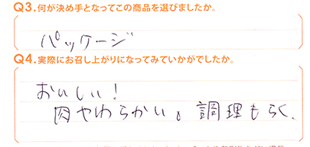 Q3.何が決め手となってこの商品を選びましたか。
パッケージ
Q4.実際にお召し上がりになってみていかがでしたか。
おいしい!
肉やわらかい。調理もらく。